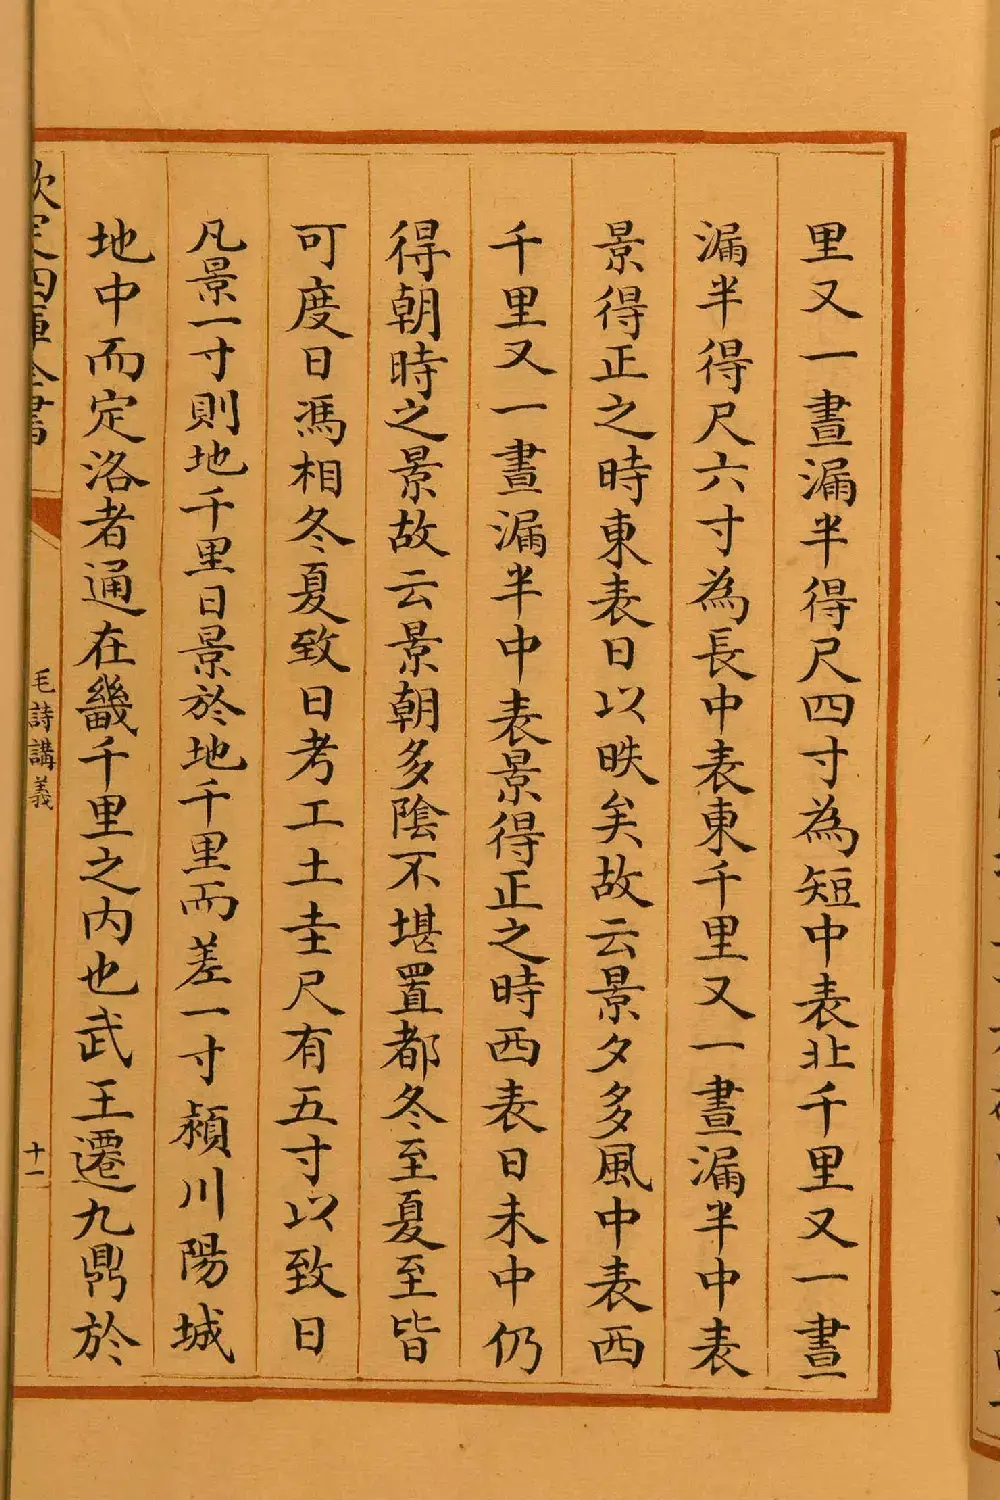 里又一晝漏半得尺四寸為短中表北千里又一晝
漏半得尺六寸為長中表東千里又一晝漏半中表
景得正之時東表日以昳矣故云景夕多風中表西
千里又一晝漏半中表景得正之時西表日未中仍
得朝時之景故云景朝多陰不堪置都冬至夏至皆
可度日馮相冬夏致日考工土圭尺有五寸以致日
凡景一寸則地千里日景於地千里而差一寸潁川陽城
地中而定洛者通在畿千里之内也武王遷九鼎於
欽定四庫全書
毛詩講義
十一